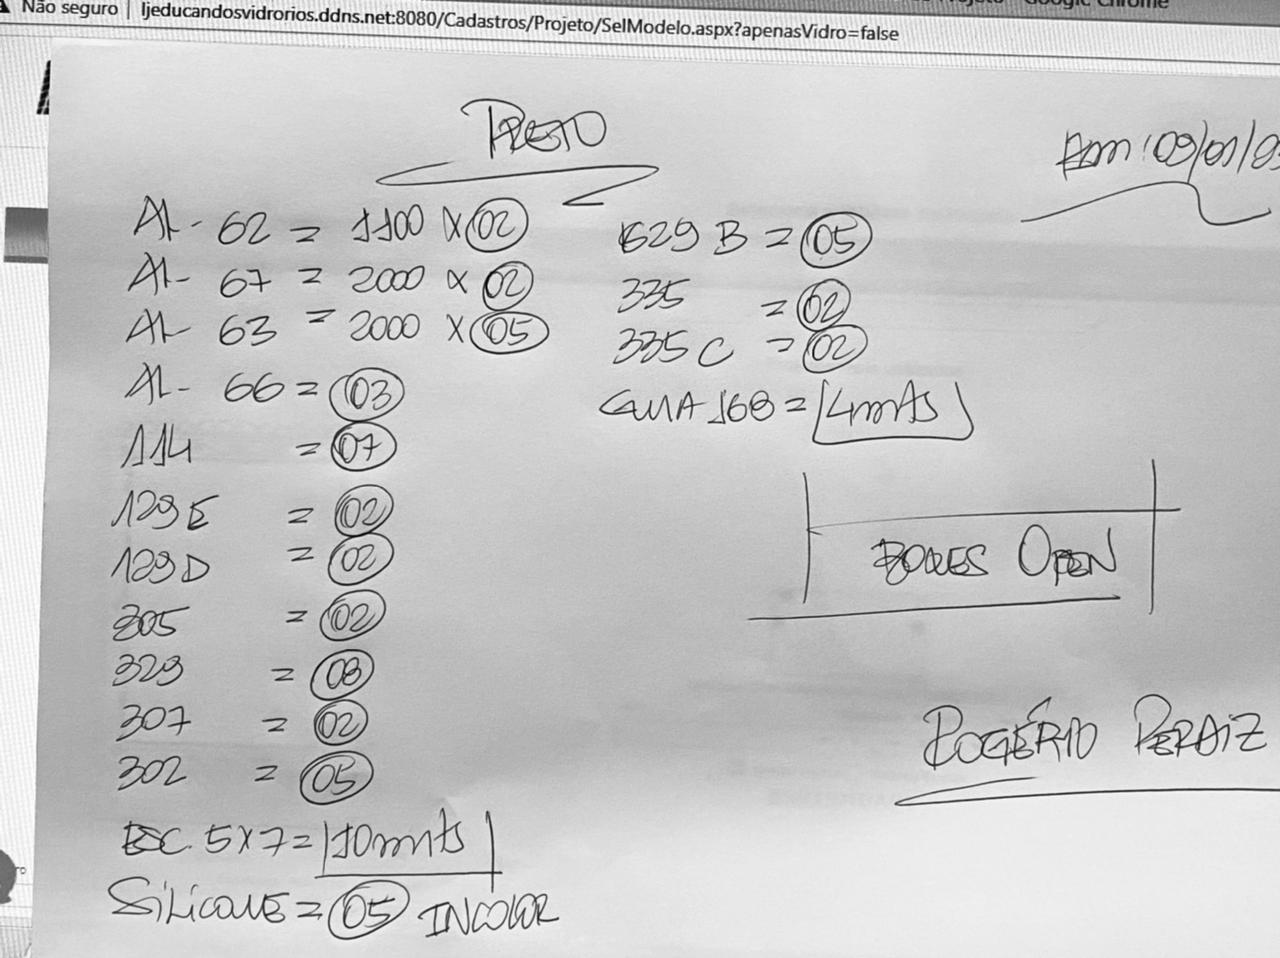 Não seguro | ljeducandosvidrorios.ddns.net:8080/Cadastros/Projeto/SelModelo.aspx?apenasVidro=false
Google Chrome
PRETO
09/01/
AL- 62 = 1100 X 02
AL- 67 = 2000 X 02
AL- 63 = 2000 X 05
AL- 66 = 03
114 = 07
129 E = 02
129 D = 02
305 = 02
329 = 08
307 = 02
302 = 05
ESC. 5X7 = 10mts
SiLicONE = 05 INCOLOR
1629 B = 05
335 = 02
335 C = 02
GUIA 168 = 4mts
BOXES OPEN
ROGÉRIO PERAIZ